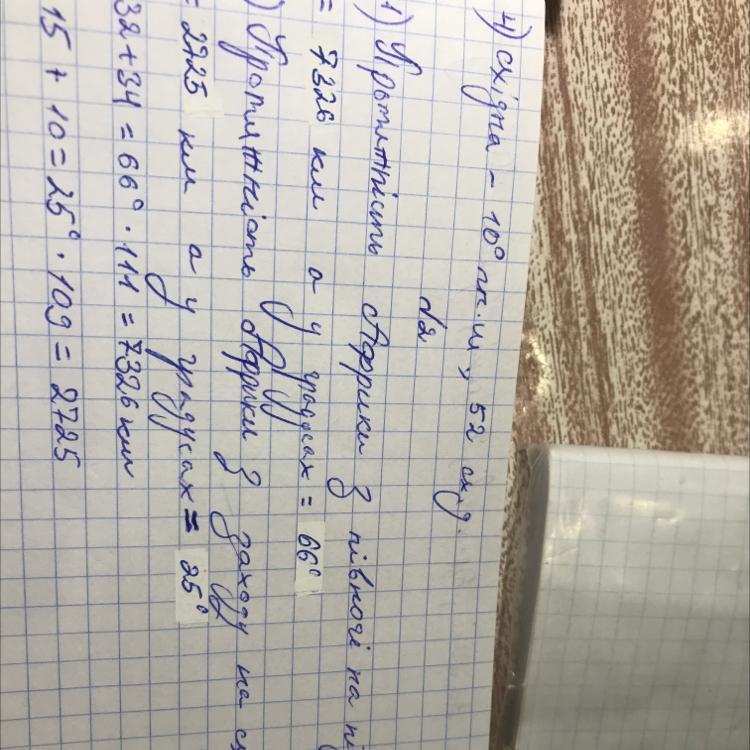 4) східна - 10° пн.ш, 52 сх.д.
№2
1) Протяжність Африки з півночі на пі
= 7326 км а у градусах = 66°
) Протяжність Африки з заходу на сх
= 2725 км а у градусах = 25°
32 + 34 = 66° · 111 = 7326 км
15 + 10 = 25° · 109 = 2725